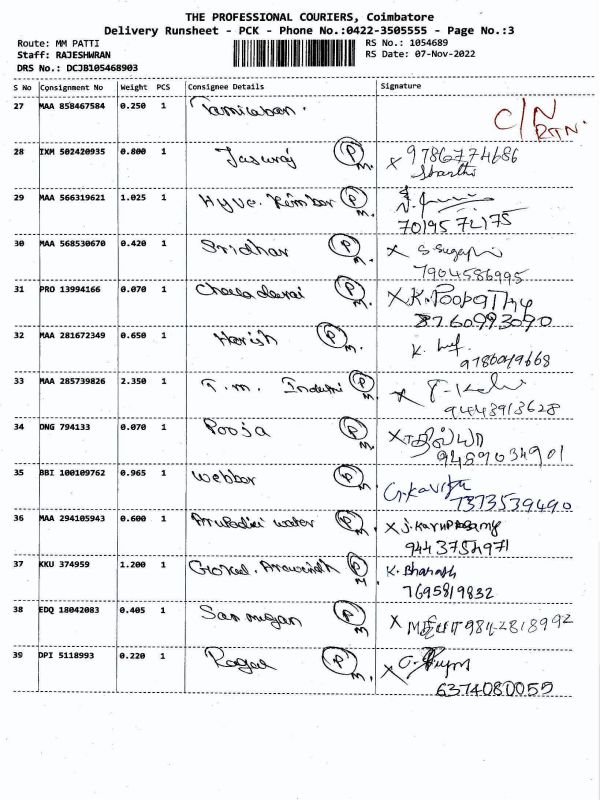 THE PROFESSIONAL COURIERS, Coimbatore
Delivery Runsheet - PCK - Phone No.:0422-3505555 - Page No.:3
Route: MM PATTI RS No.: 1054689
Staff: RAJESHWRAN RS Date: 07-Nov-2022
DRS No.: DCJB105468903
S No Consignment No Weight PCS Consignee Details Signature
27 MAA 858467584 0.250 1 C/N
RTN.
28 IXM 502420935 0.800 1 Jasuraj P M. X 9786774686
29 MAA 566319621 1.025 1 Hyve. P M.
7019572175
30 MAA 568530670 0.420 1 Sridhar P M X
7904586995
31 PRO 13994166 0.070 1 P M. X K. Poopathy
8760993090
32 MAA 281672349 0.650 1 Harish P M. K.
9786049668
33 MAA 285739826 2.350 1 T.m. P M X
9443913628
34 DNG 794133 0.070 1 Pooja P M. X
9489034901
35 BBI 100109762 0.965 1 webbor P M. G.Kavitha
7373539490
36 MAA 294105943 0.600 1 water P M. X J.
9443754971
37 KKU 374959 1.200 1 Gokul. P M. K. Bharath
7695819832
38 EDQ 18042083 0.405 1 San mugan P M X 9842818992
39 DPI 5118993 0.220 1 P M. X
6374080055